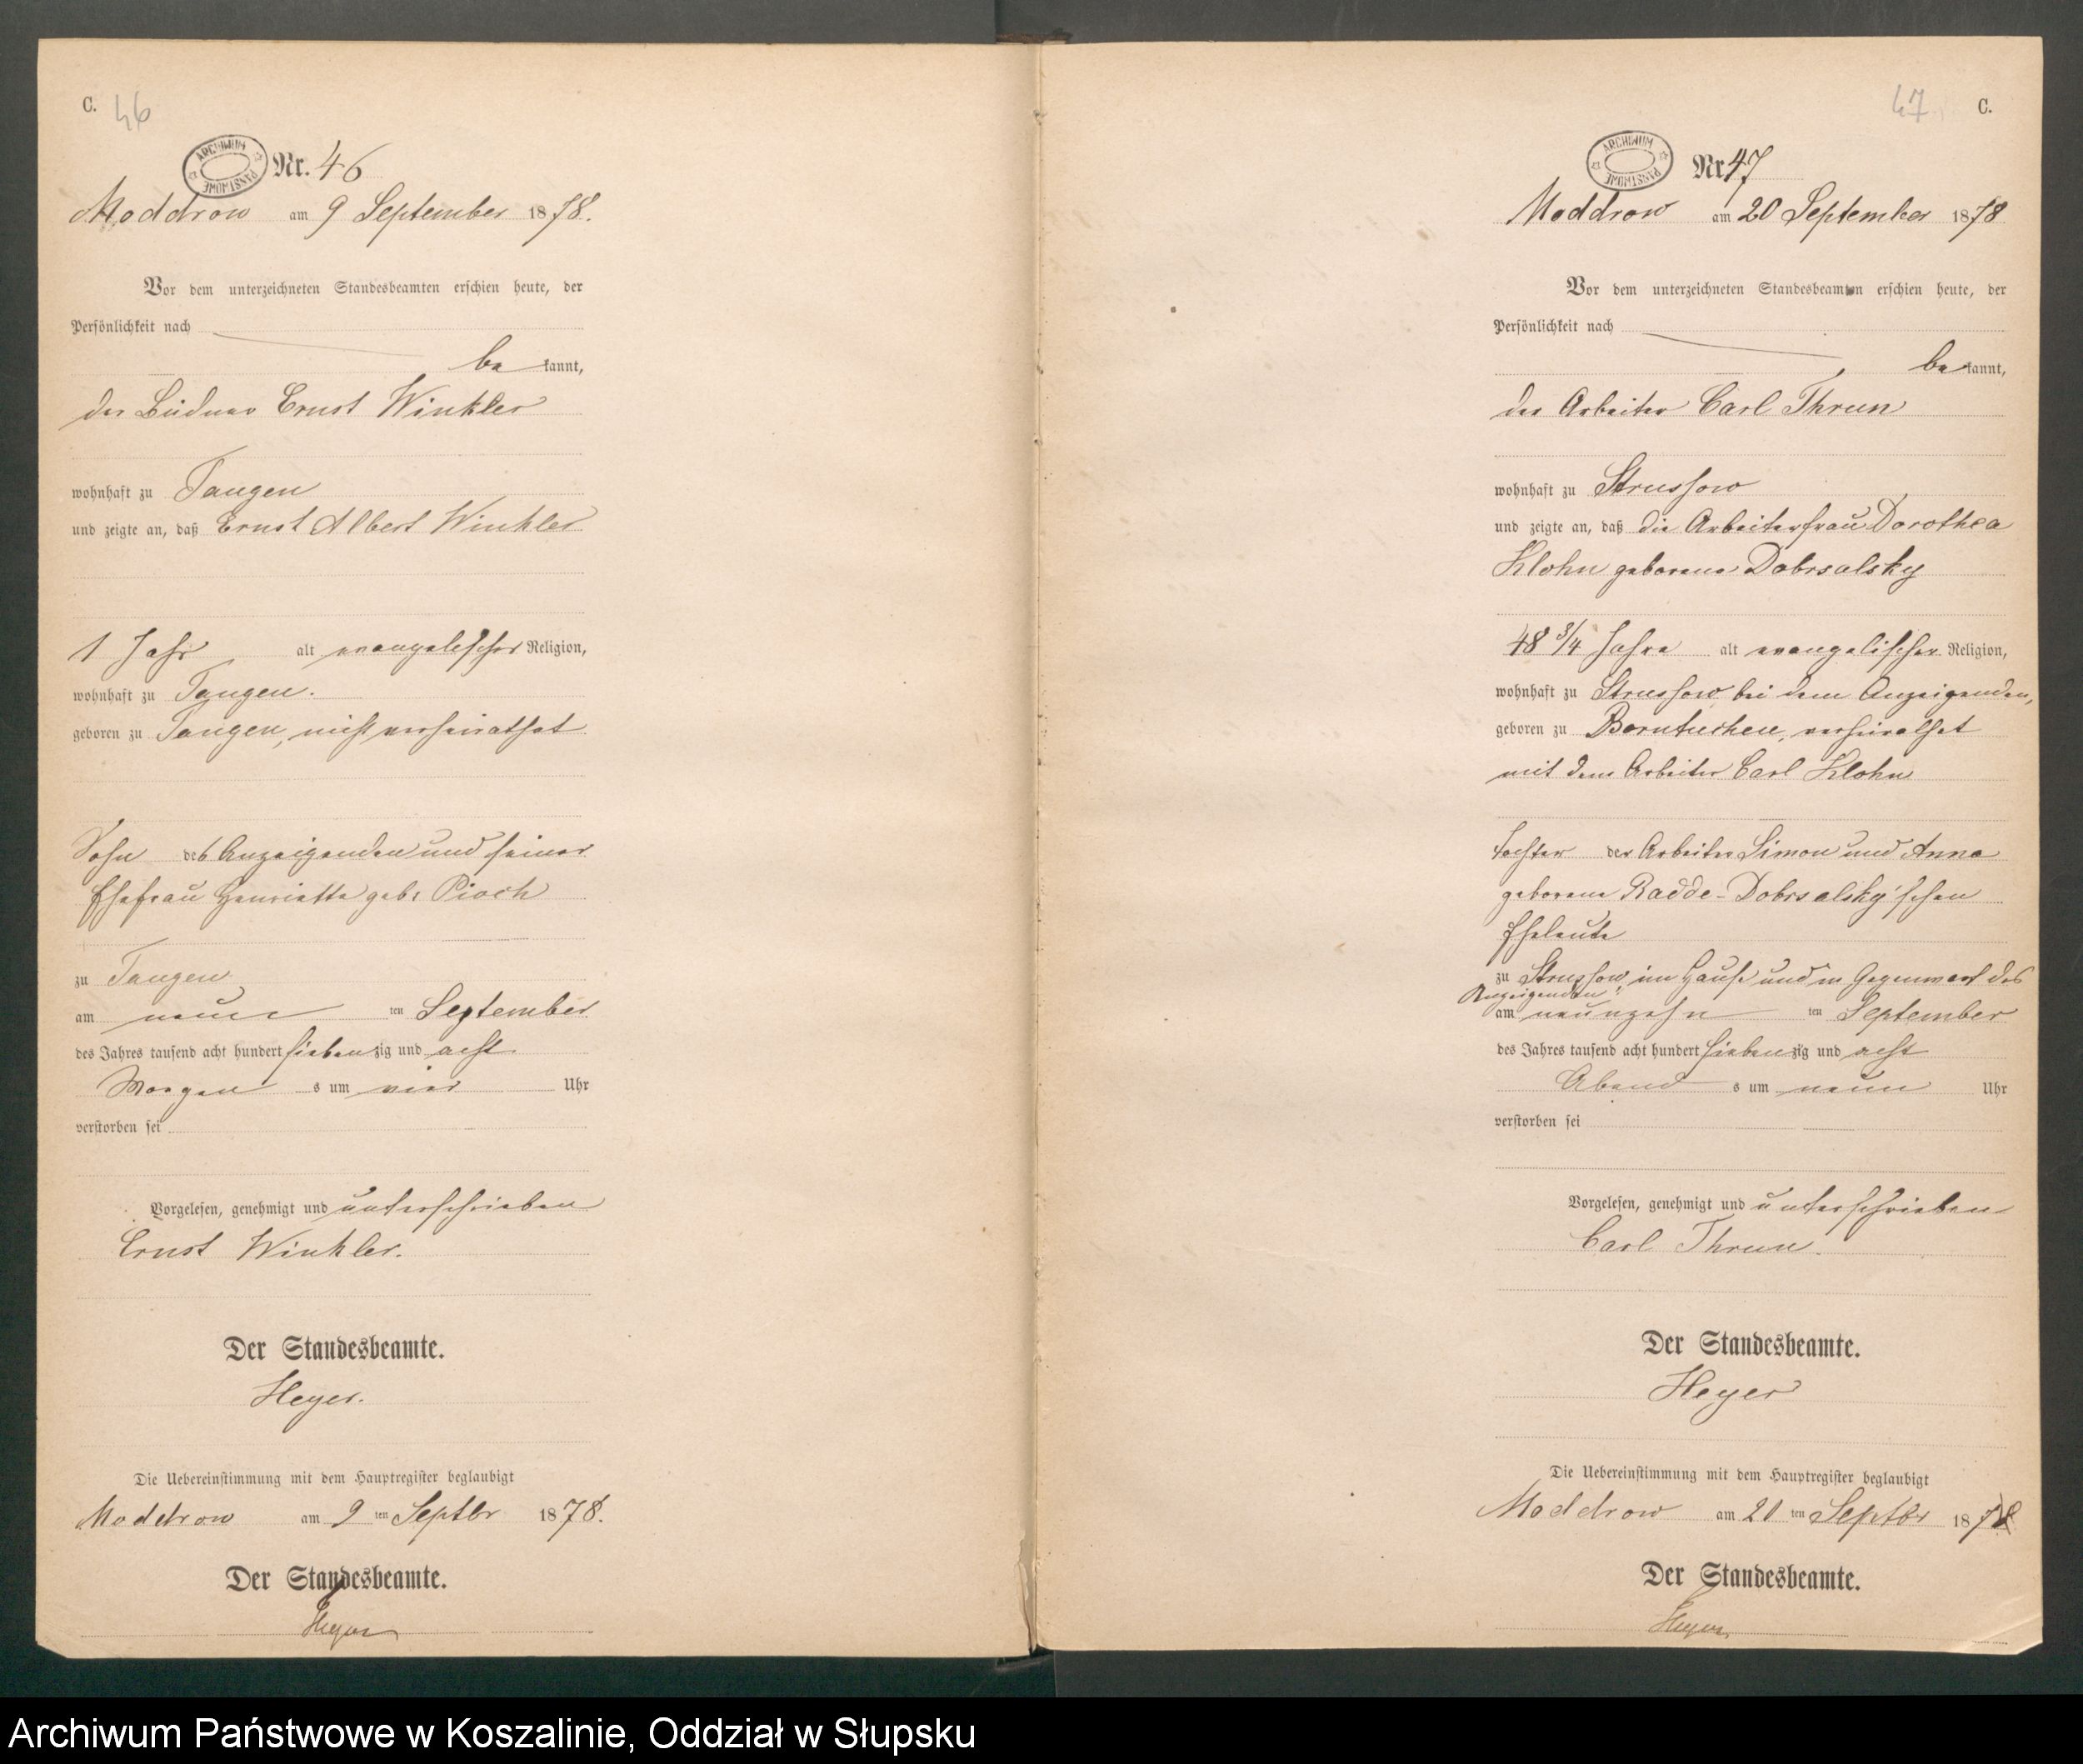 C. 46
ARCHIWUM PAŃSTWOWE
Nr. 46
Moddrow am 9 September 1878.
Vor dem unterzeichneten Standesbeamten erschien heute, der
Persönlichkeit nach
be kannt,
der Büdner Ernst Winkler
wohnhaft zu Tangen
und zeigte an, daß Ernst Albert Winkler
1 Jahr alt evangelischer Religion,
wohnhaft zu Tangen.
geboren zu Tangen, nicht verheirathet
Sohn des Anzeigenden und seiner
Ehefrau Henriette geb. Pioch
zu Tangen
am neun ten September
des Jahres tausend acht hundert siebenzig und acht
Morgen s um vier Uhr
verstorben sei
Vorgelesen, genehmigt und unterschrieben
Ernst Winkler.
Der Standesbeamte.
Heyer.
Die Uebereinstimmung mit dem Hauptregister beglaubigt
Moddrow am 9 ten Septbr 1878.
Der Standesbeamte.
Heyer
47 C.
ARCHIWUM PAŃSTWOWE
Nr 47
Moddrow am 20 September 1878
Vor dem unterzeichneten Standesbeamten erschien heute, der
Persönlichkeit nach
be kannt,
der Arbeiter Carl Thrun
wohnhaft zu Strussow
und zeigte an, daß die Arbeiterfrau Dorothea
Klohn geborene Dobrsalsky
48 3/4 Jahre alt evangelischer Religion,
wohnhaft zu Strussow bei dem Anzeigenden,
geboren zu Borntuchen, verheirathet
mit dem Arbeiter Carl Klohn
Tochter der Arbeiter Simon und Anna
geborene Radde-Dobrsalsky'schen
Eheleute
zu Strussow, im Hause und in Gegenwart des
Anzeigenden
am neunzehn ten September
des Jahres tausend acht hundert siebenzig und acht
Abend s um neun Uhr
verstorben sei
Vorgelesen, genehmigt und unterschrieben
Carl Thrun.
Der Standesbeamte.
Heyer
Die Uebereinstimmung mit dem Hauptregister beglaubigt
Moddrow am 20 ten Septbr 1878
Der Standesbeamte.
Heyer.
Archiwum Państwowe w Koszalinie, Oddział w Słupsku